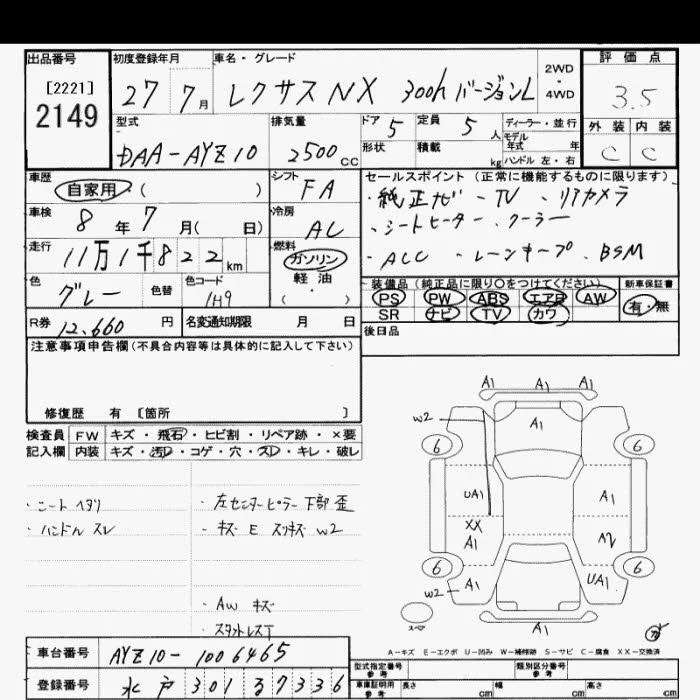 出品番号 初度登録年月 車名・グレード 評価点
[2221] 2149 27 7月 レクサス NX 300h バージョンL 2WD・4WD 3.5
型式 排気量 ドア 5 定員 5人 ディーラー・並行 外装 内装
DAA-AYZ10 2500cc 形状 積載 kg モデル年式 年 ハンドル 左・右 C C
車歴 自家用 ( ) シフト FA セールスポイント (正常に機能するものに限ります)
・純正ナビ ・TV ・リアカメラ
車検 8年 7月( 日) 冷房 AC ・シートヒーター ・クーラー
走行 11万1千822km 燃料 ガソリン 軽油 ( ) ・ACC ・レーンキープ ・BSM
色 グレー 色替 色コード 1H9 装備品 (純正品に限り○をつけてください) 新車保証書
PS PW ABS エアB AW 有・無
SR ナビ TV カワ
R券 12,660円 名変通知期限 月 日 後日品
注意事項申告欄 (不具合内容等は具体的に記入して下さい)
修復歴 有 [箇所 ]
検査員 FW キズ・飛石・ヒビ割・リペア跡・×要
記入欄 内装 キズ・汚レ・コゲ・穴・スレ・キレ・破レ
・シート ヘタリ ・左センターピラー下部 歪
・ハンドル スレ ・キズ E スリキズ W2
・AW キズ
・スタットレスT
A1 A1 A1
W2 A1
6 6
UA1 A1
XX
A1 A2
6 6
W2 A1 UA1
A1
スペア
A-キズ E-エクボ U-凹み W-補修跡 S-サビ C-腐食 XX-交換済
車台番号 AYZ10-1006465
登録番号 水戸 301 る 7336
型式指定番号 参考 類別区分番号 参考
車庫証明用 参考 長さ cm 幅 cm 高さ cm